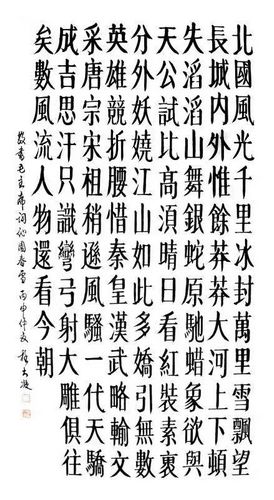 北國風光千里冰封萬里雪飄望
長城內外惟餘莽莽大河上下頓
失滔滔山舞銀蛇原馳蠟象欲與
天公試比高湏晴日看紅裝素裹
分外妖嬈江山如此多嬌引無數
英雄競折腰惜秦皇漢武略輸文
采唐宗宋祖稍遜風騷一代天驕
成吉思汗只識彎弓射大雕俱往
矣數風流人物還看今朝
敬書毛主席詞沁園春雪丙申仲夏